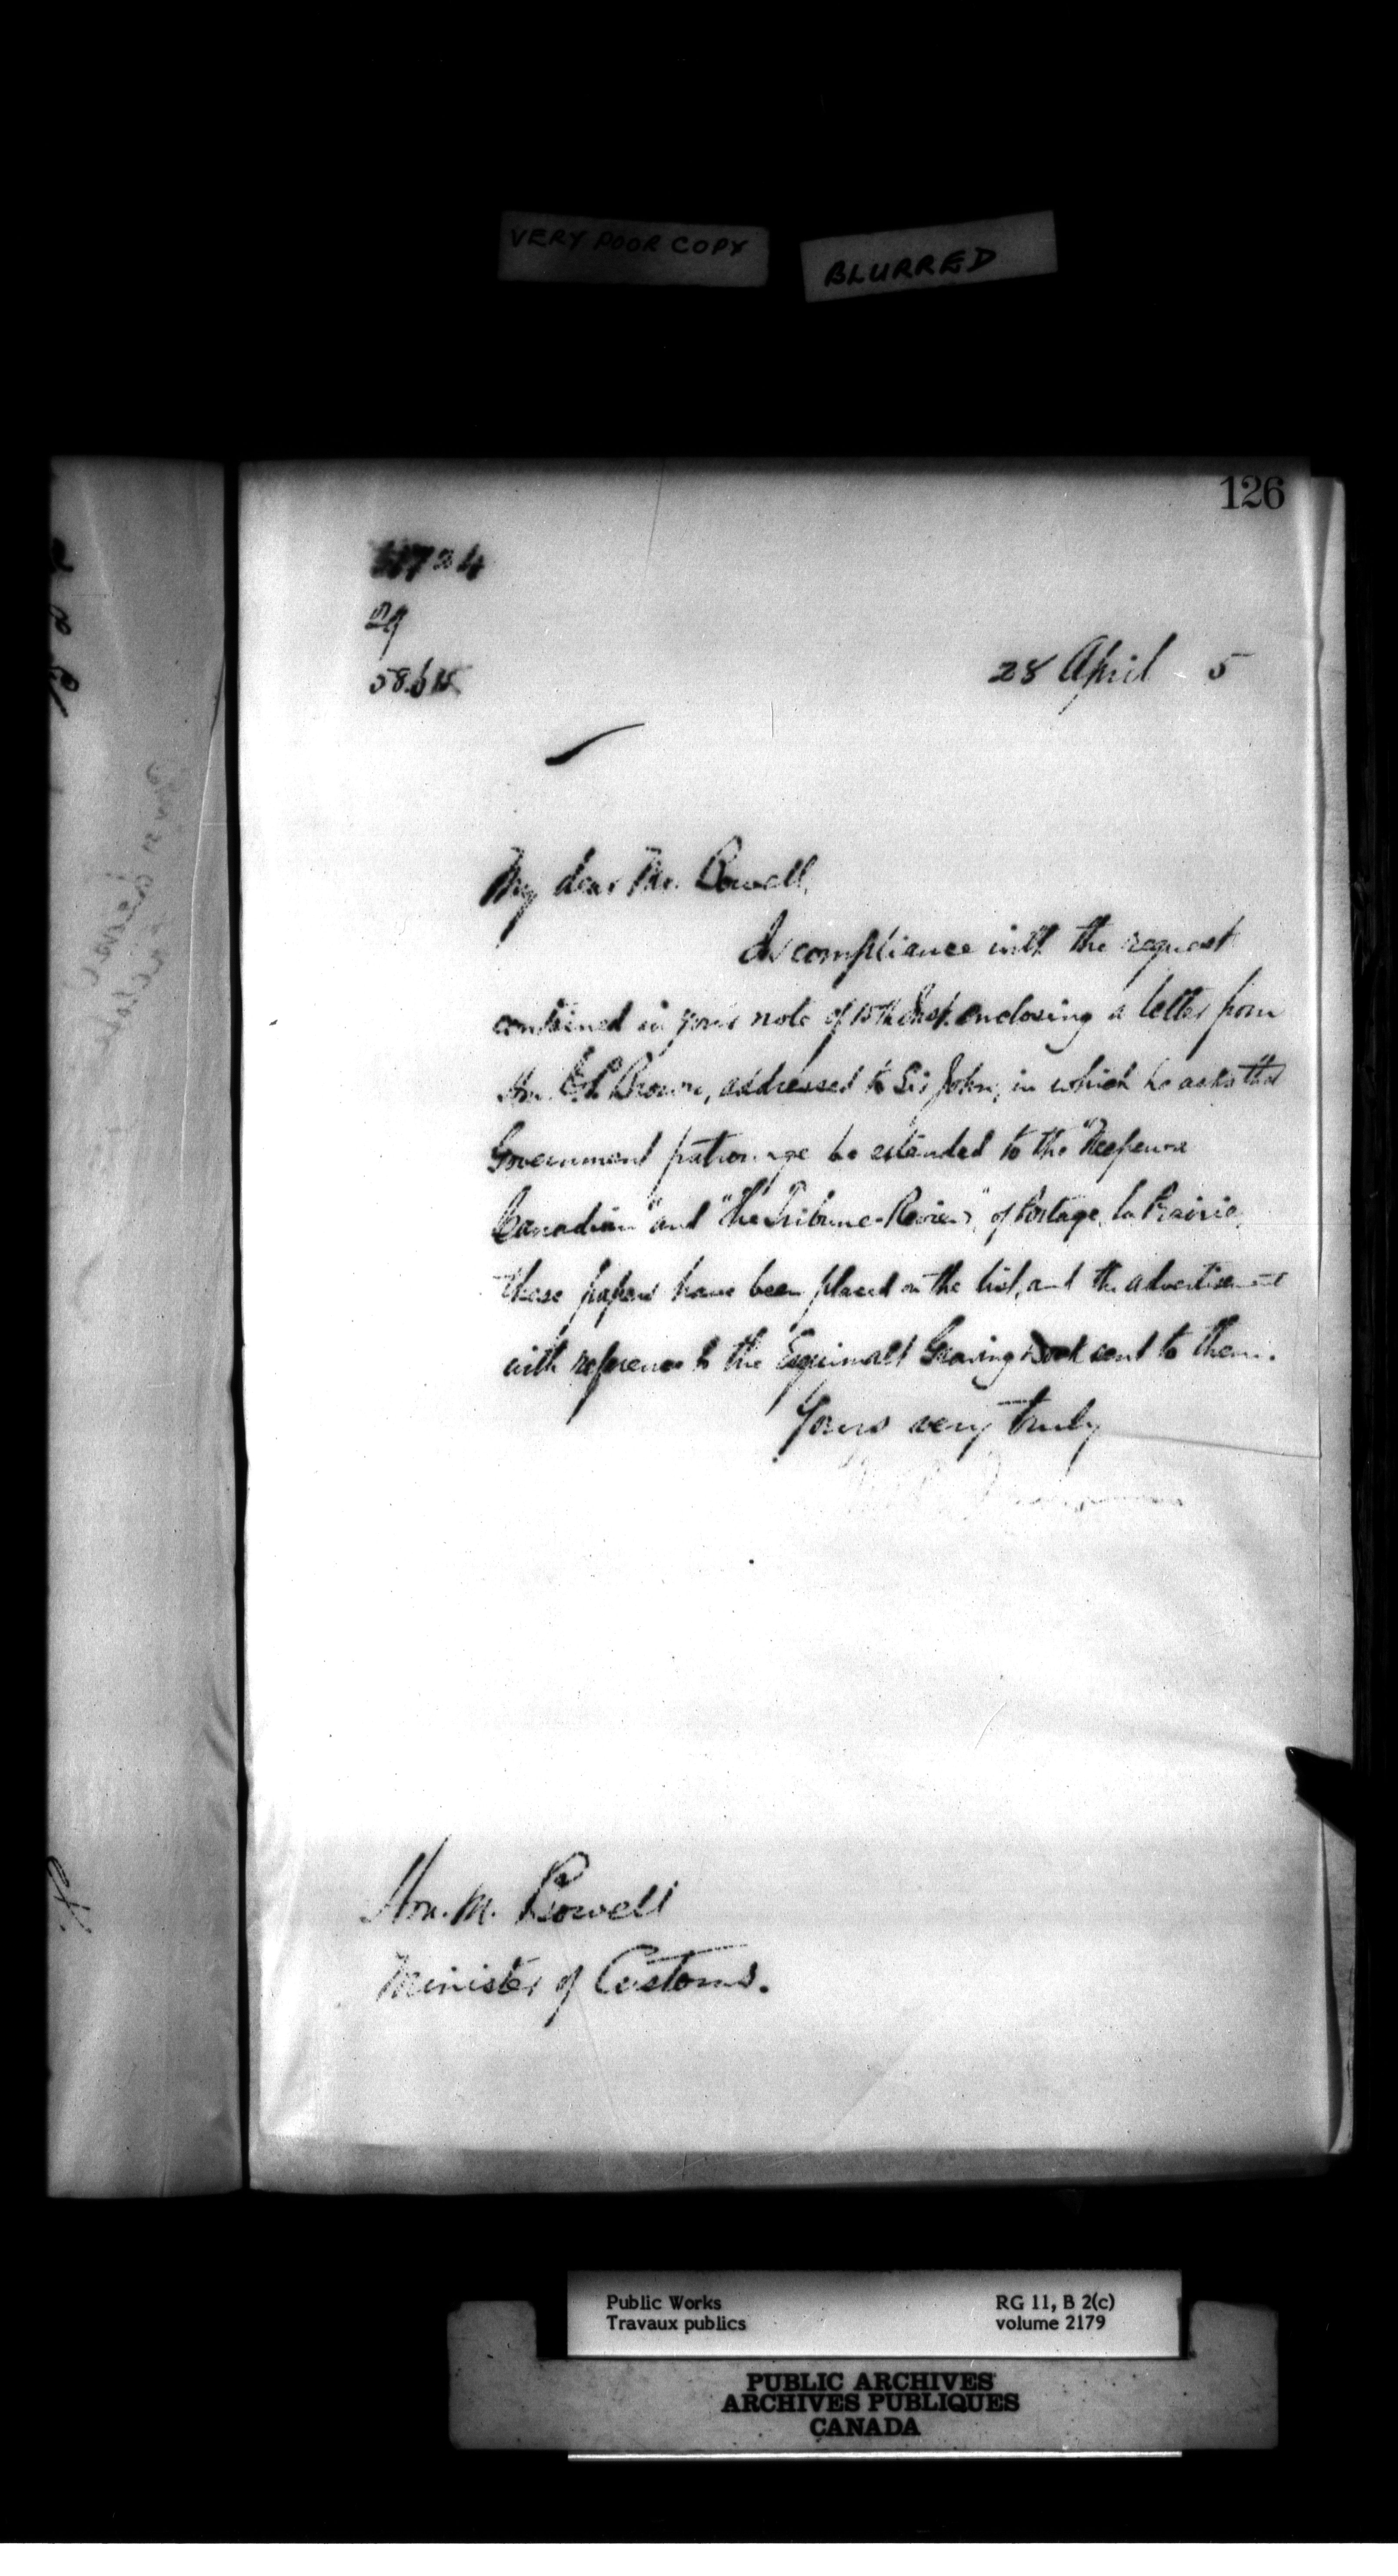 VERY POOR COPY
BLURRED
126
29
28 April 5
My dear Mr. Bowell,
In compliance with the request
contained in your note of 15th Inst. enclosing a letter from
Hon. Brown, addressed to Sir John, in which he asks that
Government patronage be extended to the "Neepawa
Canadian" and "the Tribune-Review", of Portage la Prairie,
these papers have been placed on the list, and the advertisement
with reference to the Esquimalt Graving Dock sent to them.
Yours very truly
Hon. M. Bowell
Minister of Customs.
Public Works
Travaux publics
RG 11, B 2(c)
volume 2179
PUBLIC ARCHIVES
ARCHIVES PUBLIQUES
CANADA